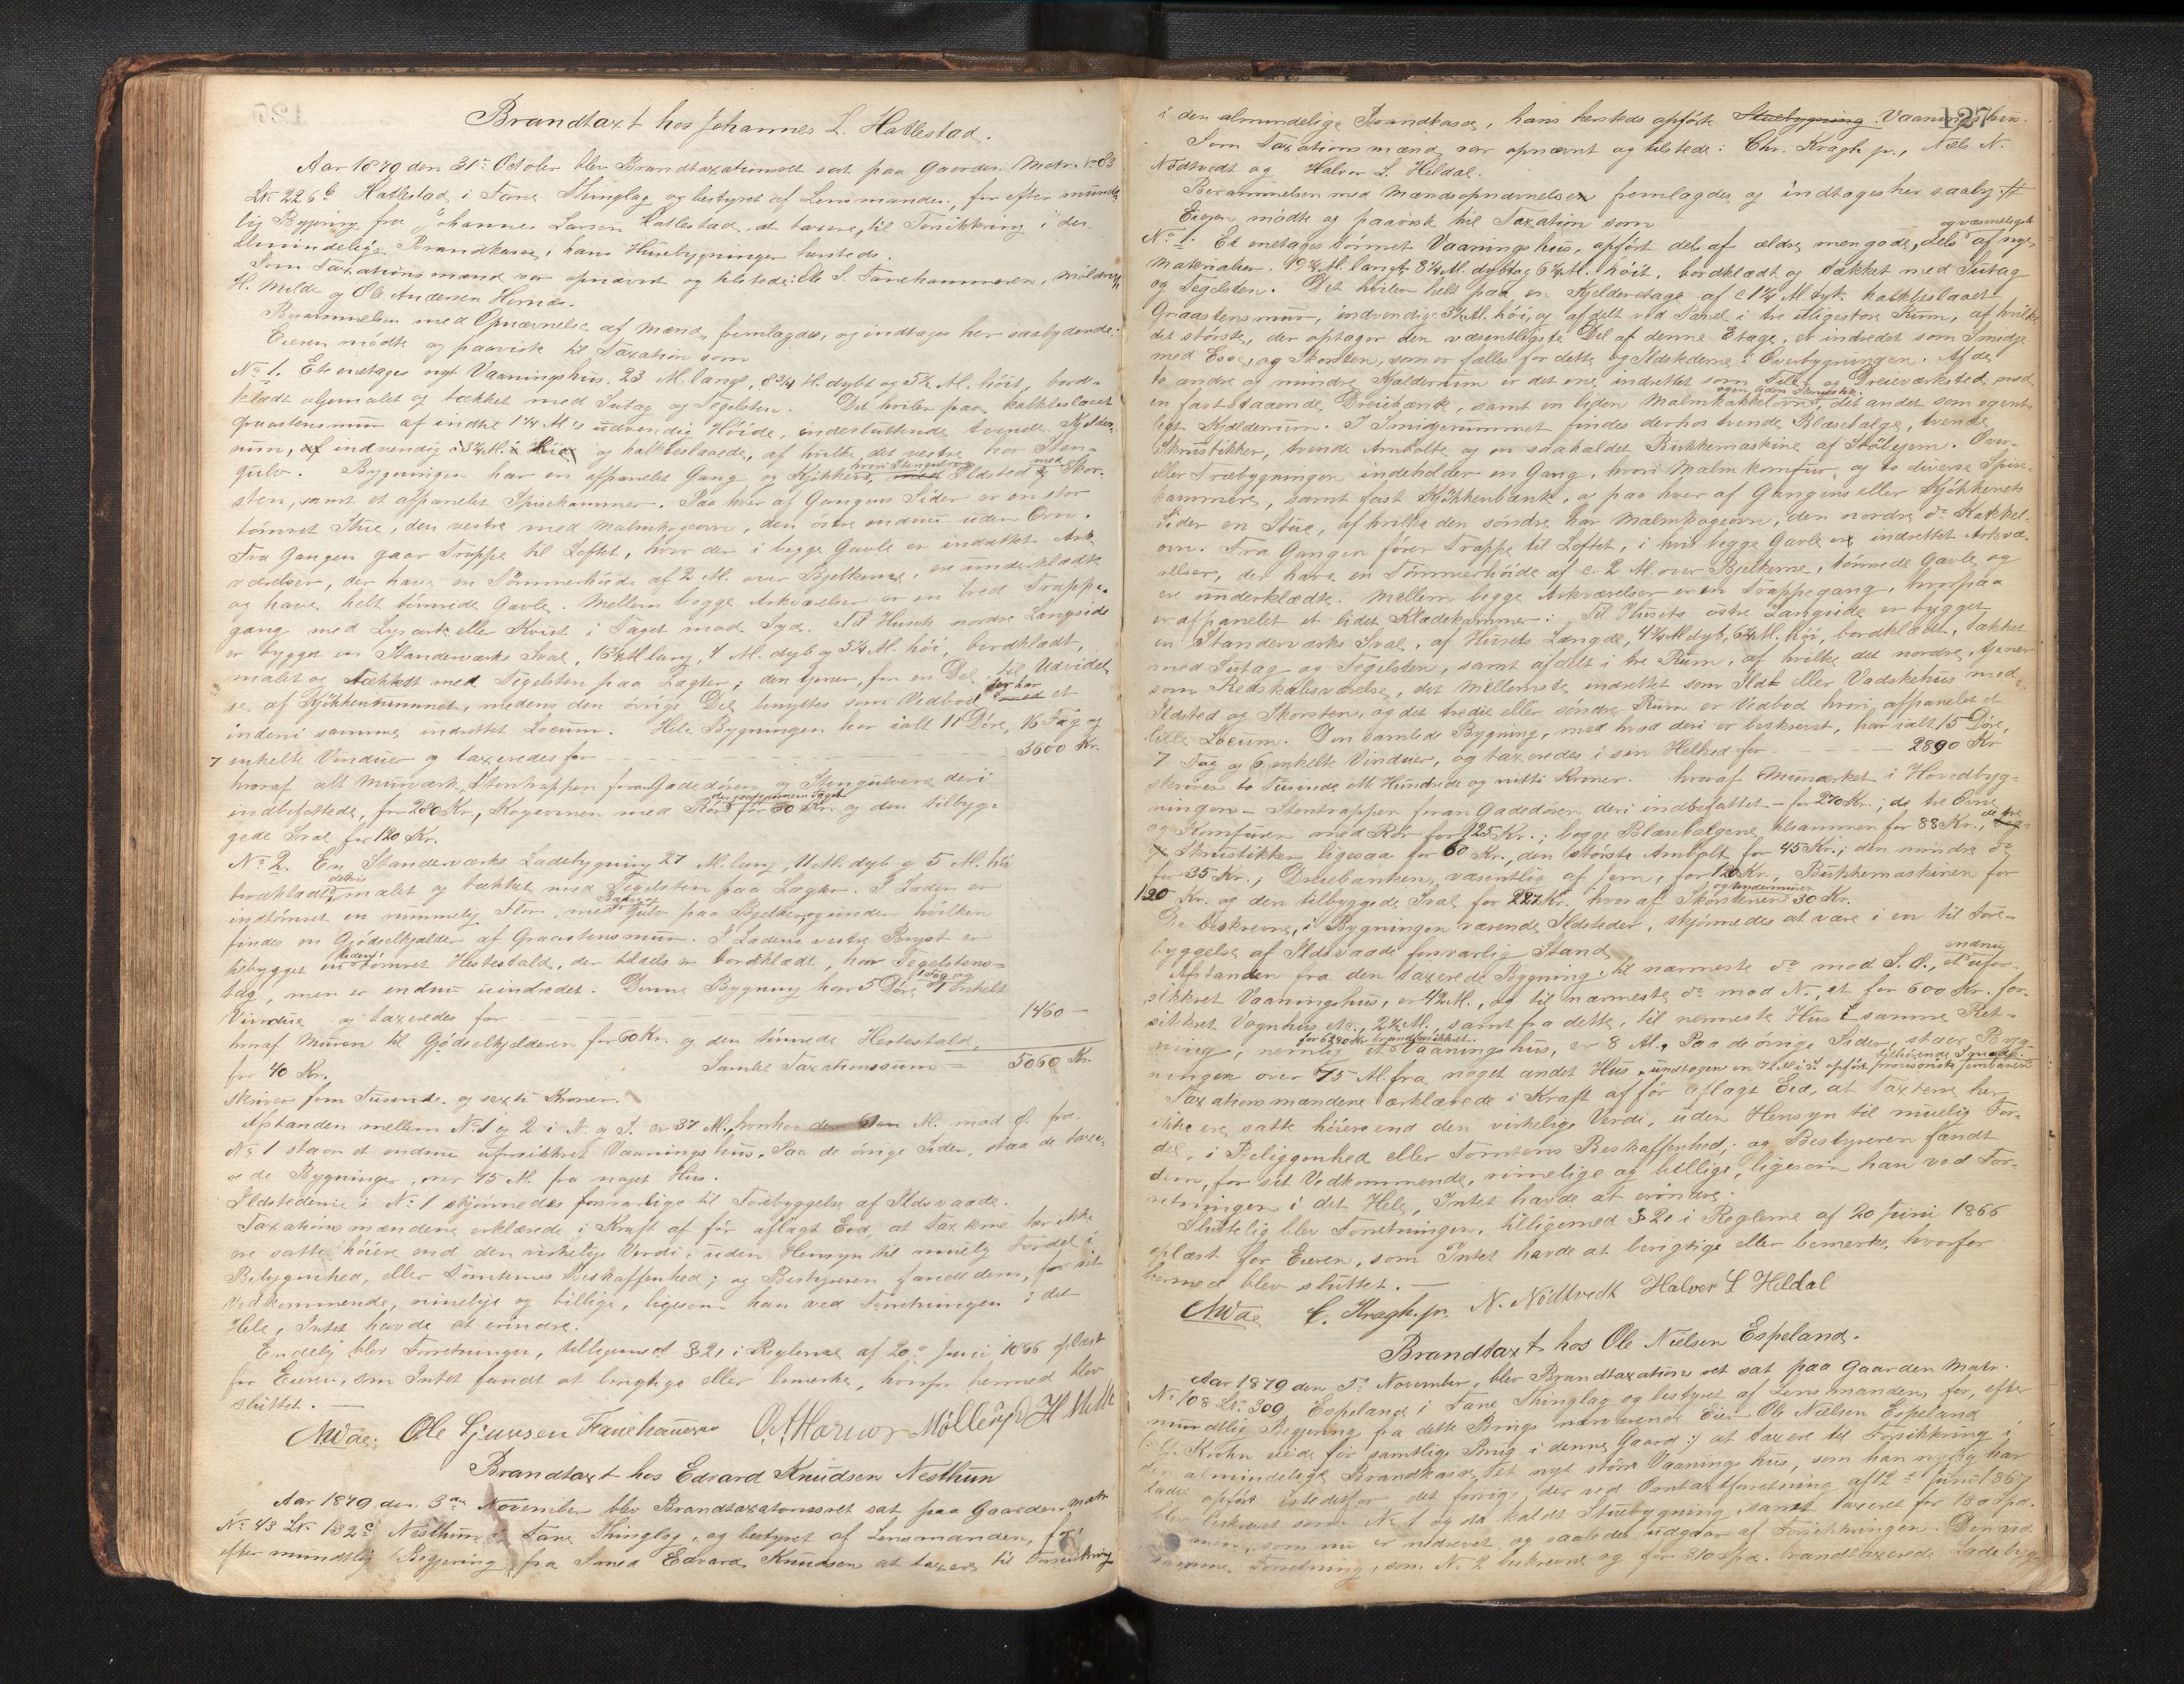 Brandtaxt hos Johannes L. Hatlestad.
Aar 1879 den 31te October blev Brandtaxationsret sat paa Gaarden Matr. No 83
LNo 226b Hatlestad i Fane Thinglag og bestyret af Lensmanden, for efter mundt-
lig Begjering fra Johannes Larsen Hatlestad, at taxere, til Forsikkring i den
almindelige Brandkasse, hans Huusbygninger hersteds.
Som Taxationsmænd var opnævnt og tilstede: Ole S. Fanehammeren,
H. Milde og Ole Andersen Hernæs.
Berammelsen med Opnævnelse af Mænd, fremlagdes, og indtages her saalydende:
Eieren mødte og paaviste til Taxation som
No 1. Et enetages nyt Vaaningshus, 23 Al. langt, 8 3/4 Al. dybt og 5 1/2 Al. høit, bord-
klædt og malet og tækket med Sutag og Tegelsten. Det hviler paa kalkbeslaaet
Graastensmuur af indtil 1 1/4 Al's udvendig Høide, indesluttende tvende Kjelder-
rum, indvendig 3 1/4 Al. og kalkbeslaaede, af hvilke det vestre har Sten-
gulv. Bygningen har en afpanelet Gang og Kjøkken, hvori Stengulv med Ildsted Skor-
sten, samt et afpanelet Spisekammer. Paa hver af Gangens Sider er en stor
tømret Stue, den vestre med Malmkogeovn, den østre endnu uden Ovn.
Fra Gangen gaar Trappe til Loftet, hvor der i begge Gavle er indrettet Ark-
værelser, der have en Tømmerhøide af 2 Al. over Bjelkerne, ere underklædte
og have helt tømrede Gavle. Mellem begge Arkværelser er en bred Trappe-
gang med Lysark eller Kvist i Taget mod Syd. Til Husets nordre Langside
er bygget en Standerværks Sval, 15 1/4 Al lang, 4 Al. dyb og 5 1/4 Al. høi, bordklædt,
malet og tækket med Tegelsten paa Lægter; den tjener, for en Del, til Udvidel-
se af Kjøkkenrummet, medens den øvrige Del benyttes som Vedbod, der har et
indeni samme indrettet Locum. Hele Bygningen har ialt 11 Døre, 16 Fag og
7 enkelte Vinduer og taxeredes for 3600 Kr.
hvoraf alt Murværk, Stentrappen foran Gadedøren og Stengulvene deri
indbefattede, for 280 Kr., Kogeovnen med Rør der gaar gjennem Taget for 60 Kr. og den tilbyg-
gede Sval for 120 Kr.
No 2. En Standerværks Ladebygning 27 Al. lang, 11 Al. dyb og 5 Al. høi
bordklædt, delvis malet og tækket med Tegelsten paa Lægter. I Laden er
indtømret en rummelig Flor, med Gulv paa Bjelker, og under hvilken
findes en Gjødselkjelder af Graastensmuur. I Ladens vestre Bryst er
tilbygget en liden tømret Hestestald, der tildels er bordklædt, har Tegelstens-
tag, men er endnu uindredet. Denne Bygning har 5 Døre 1 Fag og 1 enkelt
Vindue og taxeredes for 1460 —
hvoraf Muren til Gjødselkjelderen for 60 Kr. og den tømrede Hestestald,
for 40 Kr. Samlet Taxationssum = 5060 Kr.
skriver fem Tusinde og sexti Kroner.
Afstanden mellem No 1 og 2 i N. og S. er 37 Al., hvorhos Al. mod Ø. fra
No 1 staar et endnu uforsikkret Vaaningshus. Paa de øvrige Sider, staa de taxe-
rede Bygninger, over 75 Al. fra noget Hus.
Ildstederne i No 1 skjønnedes forsvarlige til Forebyggelse af Ildsvaade.
Taxationsmændene erklærede i Kraft af før aflagt Eed, at Taxterne her ikke
ere satte høiere end den virkelige Verdi, uden Hensyn til muelig Fordel i
Beliggenhed, eller Tomternes Beskaffenhed; og Bestyreren fandt dem, for sit
Vedkommende, rimelige og billige, ligesom han ved Forretningen i det
Hele, Intet havde at erindre.
Endelig blev Forretningen, tilligemed § 21 i Reglerne af 20de Juni 1866 oplæst
for Eieren, som Intet fandt at berigtige eller bemerke, hvorfor hermed blev
sluttet. —
Ole Sjursen Fanehammer H Milde
Brandtaxt hos Edvard Knudsen Nesthun
Aar 1879 den 3die November blev Brandtaxationsret sat paa Gaarden Matr
No 43 LNo 132c Nesthun i Fane Thinglag, og bestyret af Lensmanden, for,
efter mundtlig Begjering fra Smed Edvard Knudsen at taxere til Forsikkring
127
i den almindelige Brandkasse, hans hersteds opførte Stuebygning Vaaningshus.
Som Taxationsmænd var opnævnt og tilstede: Chr. Kragh jr., Nils N.
Nødtvedt og Halvor L. Heldal.
Berammelsen med Mandsopnævnelsen fremlagdes og indtages her saalyd:
Eieren mødte og paaviste til Taxation som
No 1. Et enetages tømret Vaaningshus, opført dels af ældre men gode, dels og væsentligst af nye
Materialier. 19 1/4 Al. langt, 8 1/4 Al. dybt og 6 1/4 Al. høit, bordklædt og tækket med Sutag
og Tegelsten. Det hviler helt paa en Kjelderetage af c 1 1/4 Al. tyk kalkbeslaaet
Graastensmuur, indvendig 3 1/2 Al. høi, og afdelt ved Panel i tre uligestore Rum, af hvilke
det største, der optager den væsentligste Del af denne Etage, er indredet som Smidje
med Esse, og Skorsten, som er fælles for dette og Ildstederne i Overbygningen. Af de
to andre og mindre Kjelderrum er det ene indrettet som File- og Dreieværksted med
en faststaaende Dreiebænk, samt en liden Malmkakkelovn, det andet som egent-
ligt Kjelderrum. I Smidjerummet findes derhos tvende Blæsebælge, tvende
Skruestikker, tvende Ambolte og en saakaldet Bukkemaskine af Støbejern. Over-
eller Træbygningen indeholder en Gang, hvori Malmkomfur og to diverse Spise-
kammere, samt fast Kjøkkenbænk, og paa hver af Gangens eller Kjøkkenets
Sider en Stue, af hvilke den søndre har Malmkogeovn, den nordre do Kakkel-
ovn. Fra Gangen fører Trappe til Loftet, i hvis begge Gavle er indrettet Arkvæ-
relser, der have en Tømmerhøide af c. 2 Al. over Bjelkerne, tømrede Gavle og
ere underklædte. Mellem begge Arkværelser er en Trappegang, hvorpaa
er afpanelet et lidet Klædekammer. Til Husets østre Langside er bygget
en Standerværks Sval, af Husets Længde, 4 1/4 Al dyb, 6 1/2 Al. høi, bordklædt, tækket
med Sutag og Tegelsten, samt afdelt i tre Rum, af hvilke det nordre tjener
som Redskabsværelse, det mellemste indrettet som Ild- eller Vadskehus med
Ildsted og Skorsten, og det tredie eller søndre Rum er Vedbod hvori afpanelet et
lille Locum. Den samlede Bygning, med hvad deri er beskrevet, har ialt 15 Døre,
7 Fag og 6 enkelte Vinduer, og taxeredes i sin Helhed for 2890 Kr
skriver to Tusinde otte Hundrede og nitti Kroner. hvoraf Murværket i Hovedbyg-
ningen — Stentrappen foran Gadedøren deri indbefattet — for 270 Kr.; de tre Ovne
og Komfuren med Rør for 125 Kr.; begge Blæsebælgene tilsammen for 88 Kr.,
Skruestikker ligesaa for 60 Kr., den største Ambolt for 45 Kr.; den mindre do
for 35 Kr.; Dreiebænken, væsentlig af Jern, for 120 Kr., Bukkemaskinen for
120 Kr. og den tilbyggede Sval for 227 Kr. hvoraf Skorstenen 30 Kr.
De beskrevne, i Bygningen værende Ildsteder, skjønnedes at være i en til Fore-
byggelse af Ildsvaade forsvarlig Stand
Afstanden fra den taxerede Bygning, til nærmeste do mod S.Ø., et endnu ufor-
sikkret Vaaningshus, er 4 1/2 Al., og til nærmeste do mod N., et for 600 Kr. for-
sikkret Vognhus etc., 2 1/2 Al., samt fra dette, til nærmeste Hus i samme Ret-
ning, nemlig et for 6280 Kr. brandforsikkret Vaaningshus, er 8 Al. Paa de øvrige Sider, staar Byg-
ningen over 75 Al. fra noget andet Hus
Taxationsmændene erklærede i Kraft af før aflagt Eid, at Taxterne her
ikke ere satte høiere end den virkelige Verdi, uden Hensyn til muelig For-
del, i Beliggenhed eller Tomtens Beskaffenhed; og Bestyreren fandt
dem, for sit Vedkommende, rimelige og billige, ligesom han ved For-
retningen i det Hele, Intet havde at erindre.
Sluttelig blev Forretningen, tilligemed § 21 i Reglerne af 20 Juni 1866
oplæst for Eieren, som Intet havde at berigtige eller bemerke, hvorfor
hermed blev sluttet. —
C. Kragh. jr. N. Nödtvedt Halvor L Heldal
Brandtaxt hos Ole Nielsen Espeland.
Aar 1879 den 5te November, blev Brandtaxationsret sat paa Gaarden Matr.
No 108 LNo 309 Espeland i Fane Thinglag og bestyret af Lensmanden, for, efter
mundtlig Begjering fra dette Brugs nærværende Eier Ole Nielsen Espeland
Krohn eiede før samtlige Brug i denne Gaard :/ at taxere til Forsikkring i
den almindelige Brandkasse, et nyt større Vaaningshus, som han nylig har
ladet opføre istedetfor det forrige, der ved Omtaxtforretning af 12te Juni 1867
blev beskrevet som No 1 og da kaldt Stuebygning, samt taxeret for 180 Spd.
men, som nu er nedrevet og saaledes udgaar af Forsikkringen. Den ved
samme Forretning, som No 2 beskrevne og for 310 Spd. brandtaxerede Ladebyg-